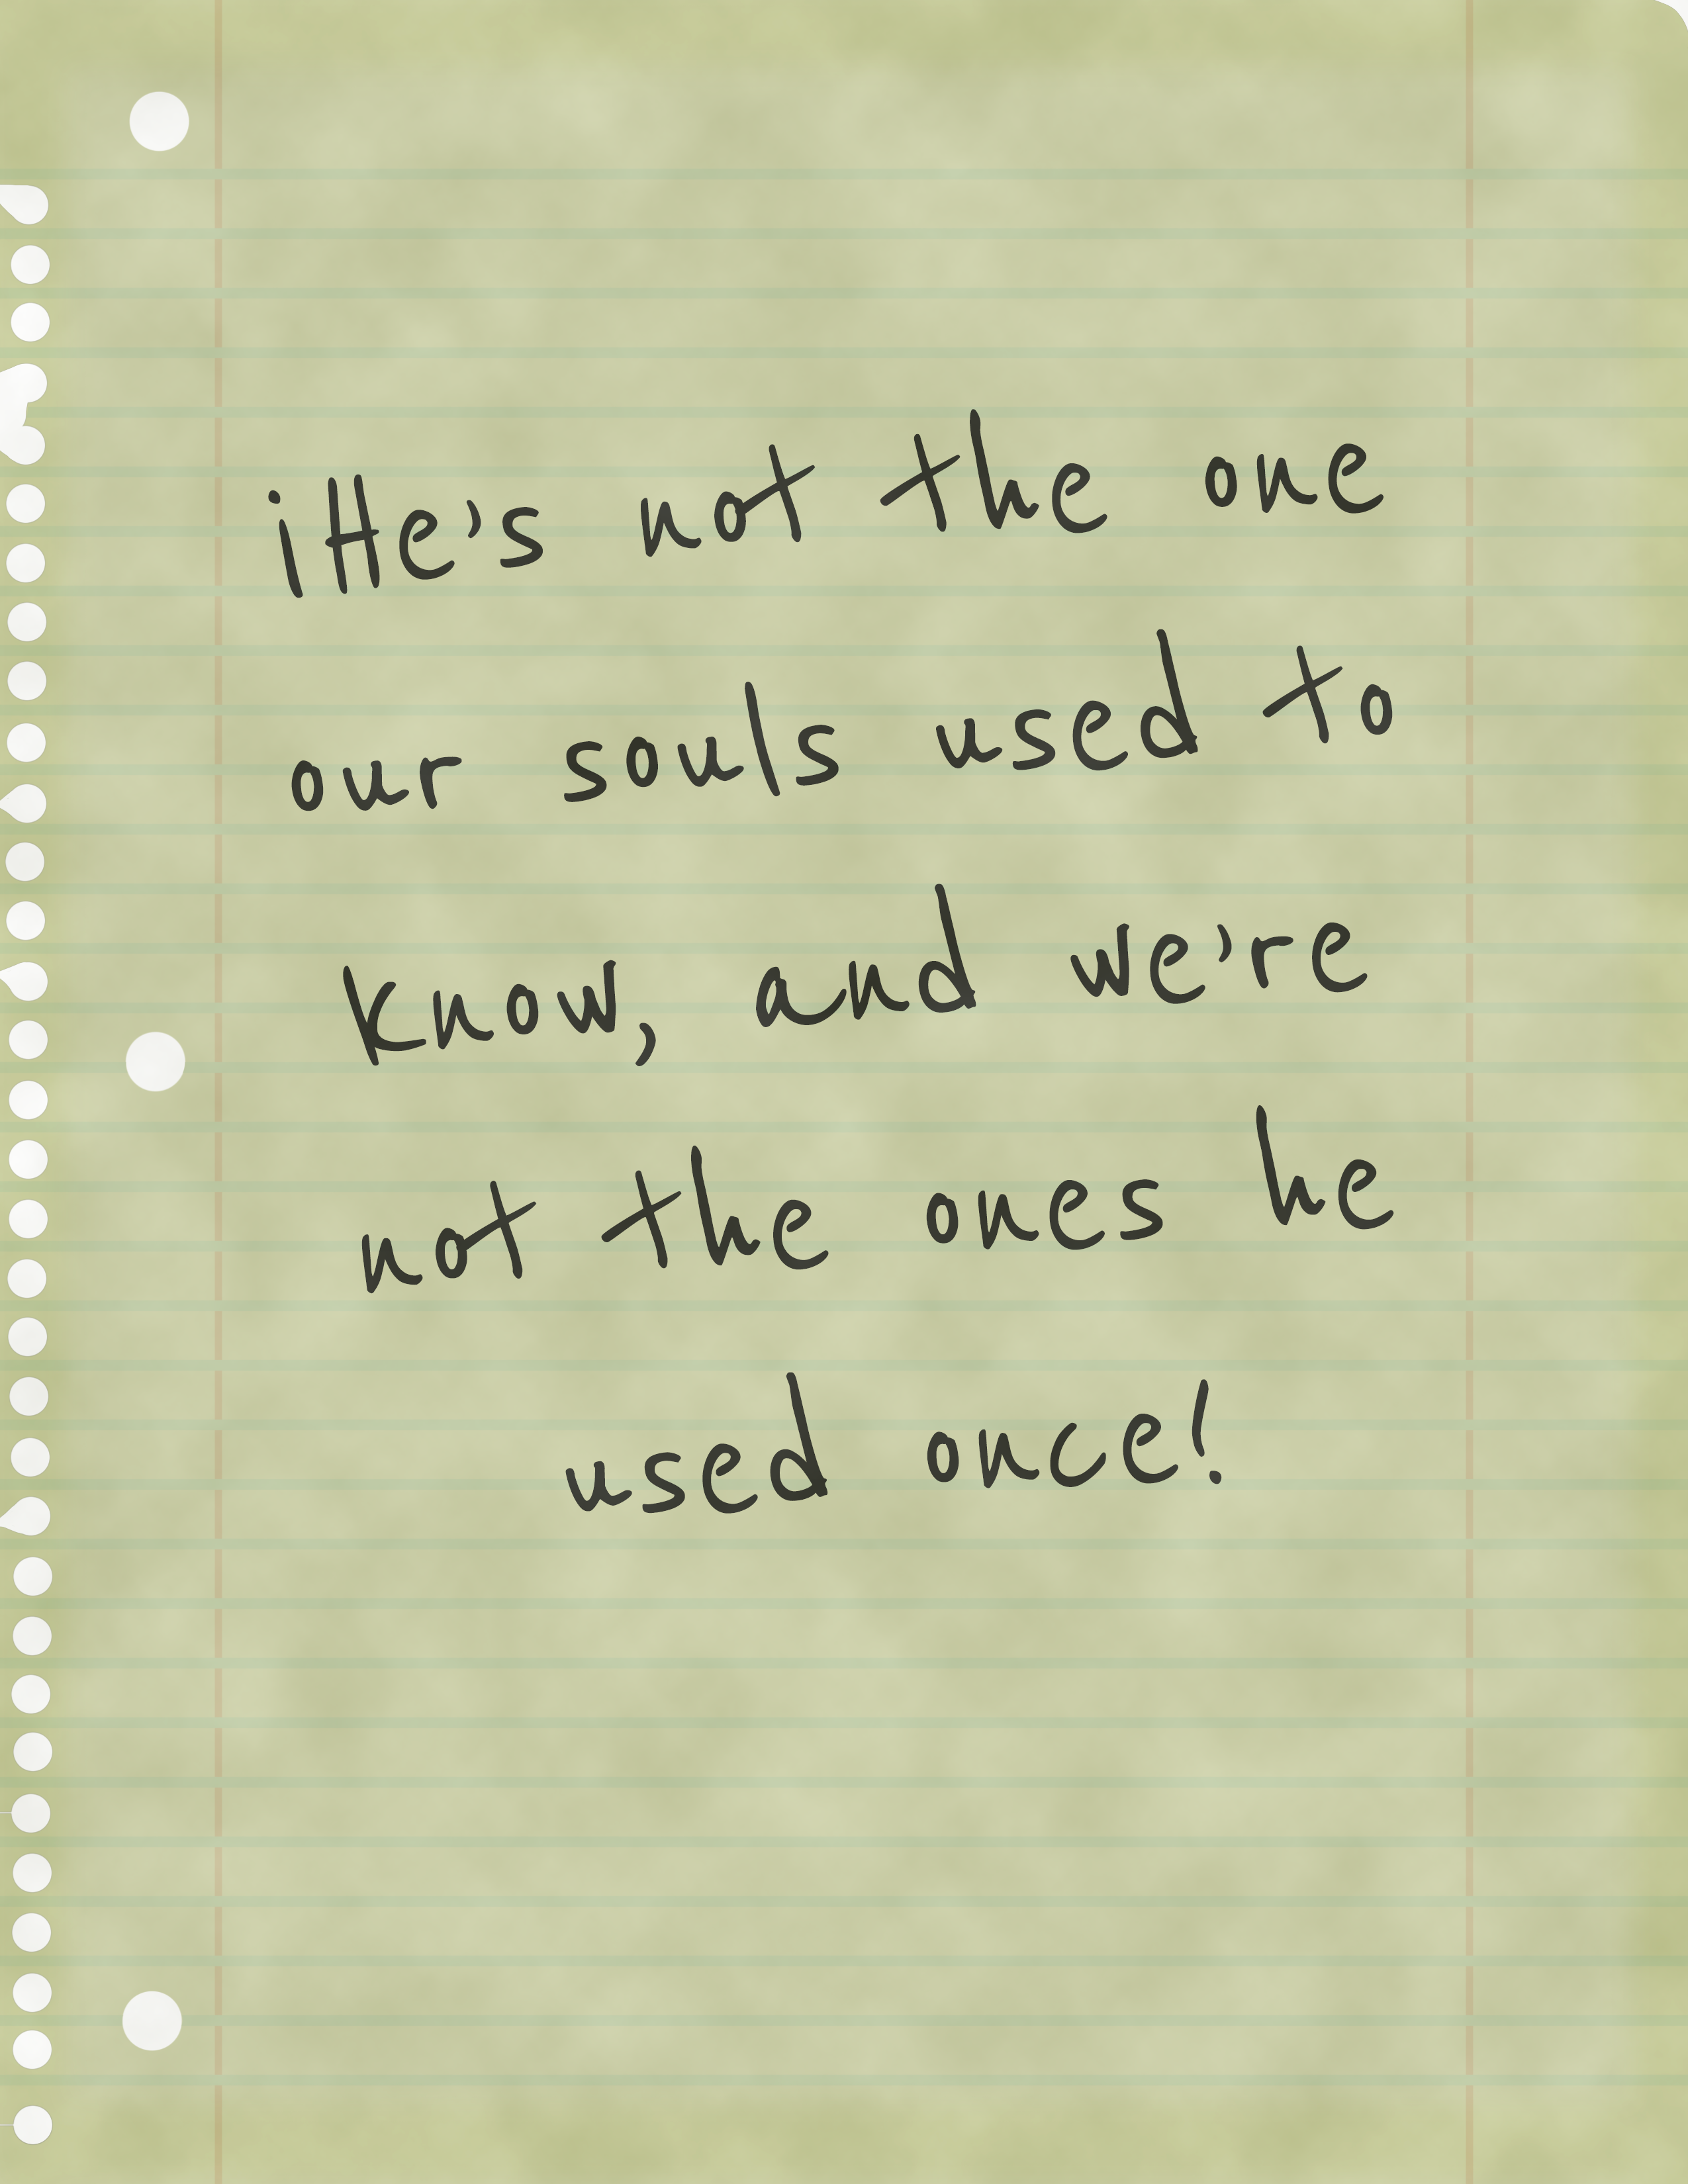 ¡He's not the one
our souls used to
know, and we're
not the ones he
used once!